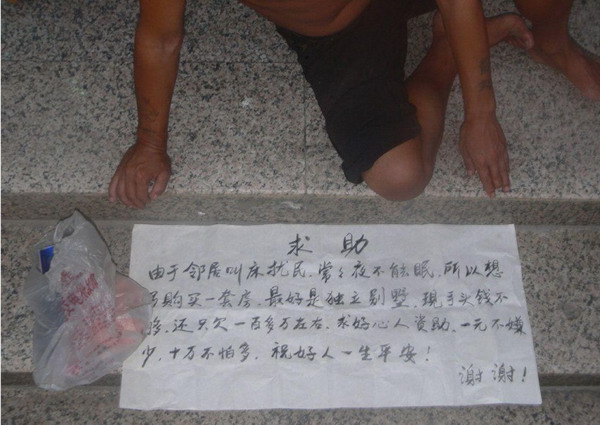 求助
由于邻居叫床扰民，常々夜不能眠，所以想
另购买一套房，最好是独立别墅，现手头钱不
够，还只欠一百多万左右，求好心人资助，一元不嫌
少，十万不怕多，祝好人一生平安！
谢谢！